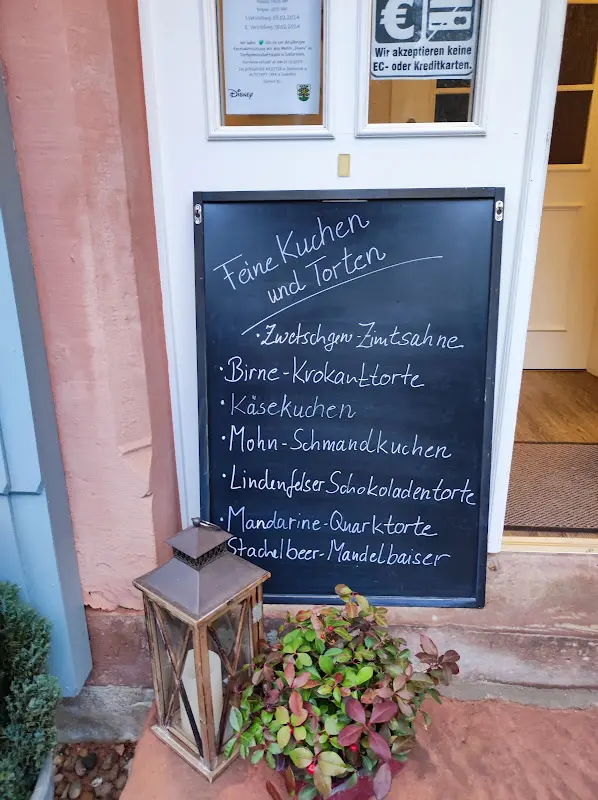 1. Vorstellung: 18.03.2024
2. Vorstellung: 19.03.2024
Disney
€
Wir akzeptieren keine
EC- oder Kreditkarten.
Feine Kuchen
und Torten
• Zwetschgen Zimtsahne
• Birne-Krokanttorte
• Käsekuchen
• Mohn-Schmandkuchen
• Lindenfelser Schokoladentorte
• Mandarine-Quarktorte
Stachelbeer-Mandelbaiser